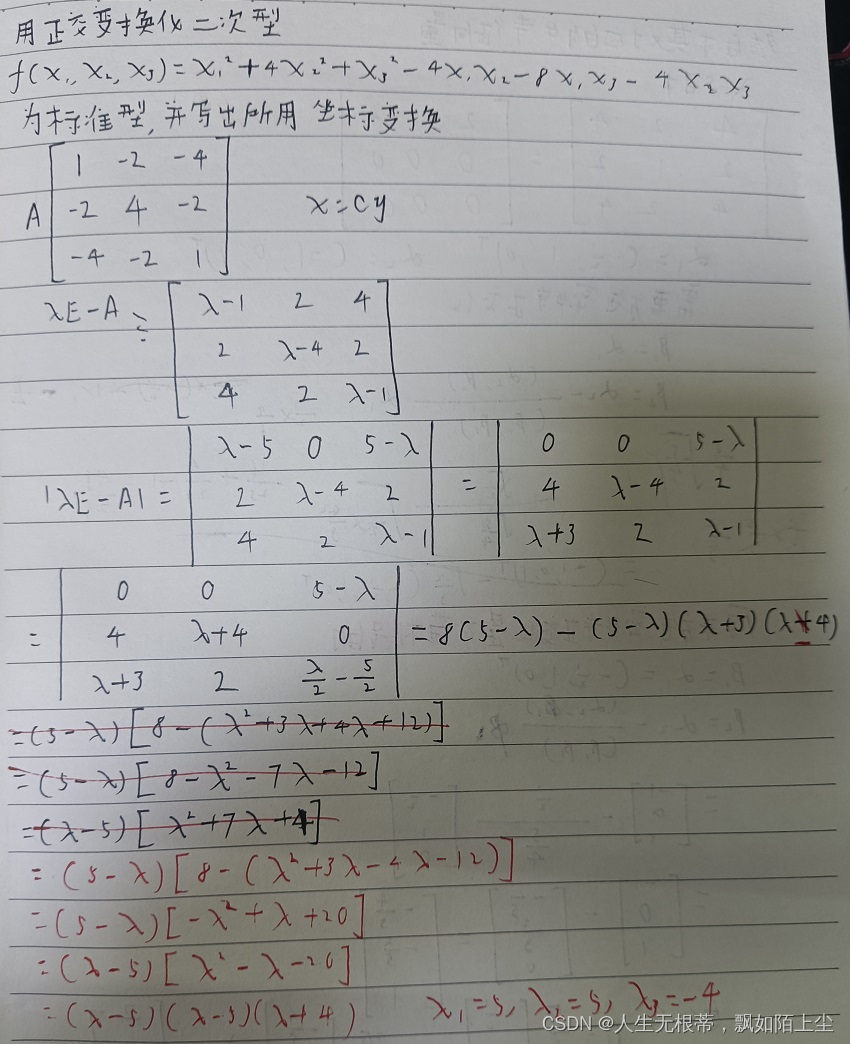 用正交变换化二次型
f(x₁, x₂, x₃) = x₁² + 4x₂² + x₃² - 4x₁x₂ - 8x₁x₃ - 4x₂x₃
为标准型, 并写出所用 坐标变换
1 -2 -4
A -2 4 -2 x = cy
-4 -2 1
λE-A = λ-1 2 4
2 λ-4 2
4 2 λ-1
λ-5 0 5-λ 0 0 5-λ
|λE-A| = 2 λ-4 2 = 4 λ-4 2
4 2 λ-1 λ+3 2 λ-1
0 0 5-λ
= 4 λ+4 0 = 8(5-λ) - (5-λ)(λ+3)(λ-4)
λ+3 2 λ/2 - 5/2
= (5-λ)[8-(λ²+3λ+4λ+12)]
= (5-λ)[8-λ²-7λ-12]
= (λ-5)[λ²+7λ+4]
= (5-λ)[8-(λ²+3λ-4λ-12)]
= (5-λ)[-λ²+λ+20]
= (λ-5)[λ²-λ-20]
= (λ-5)(λ-5)(λ+4) λ₁=5, λ₂=5, λ₃=-4
CSDN @人生无根蒂，飘如陌上尘